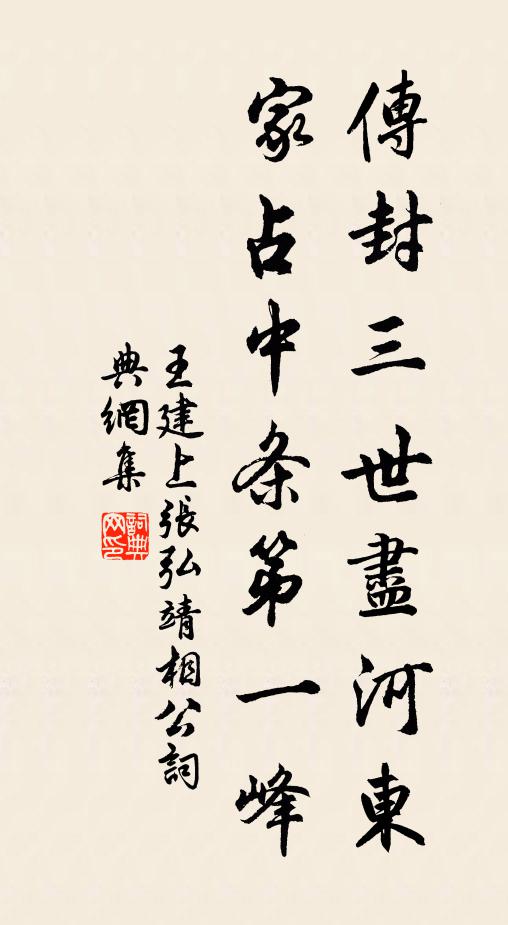 傳封三世盡河東
家占中条第一峰
王建上張弘靖相公詞
典網集
詞典網印